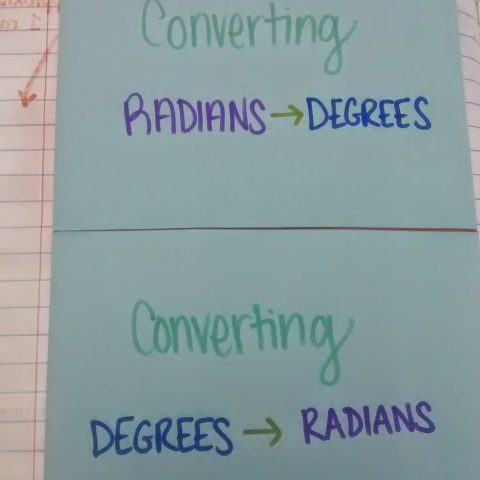 Converting
RADIANS → DEGREES
Converting
DEGREES → RADIANS